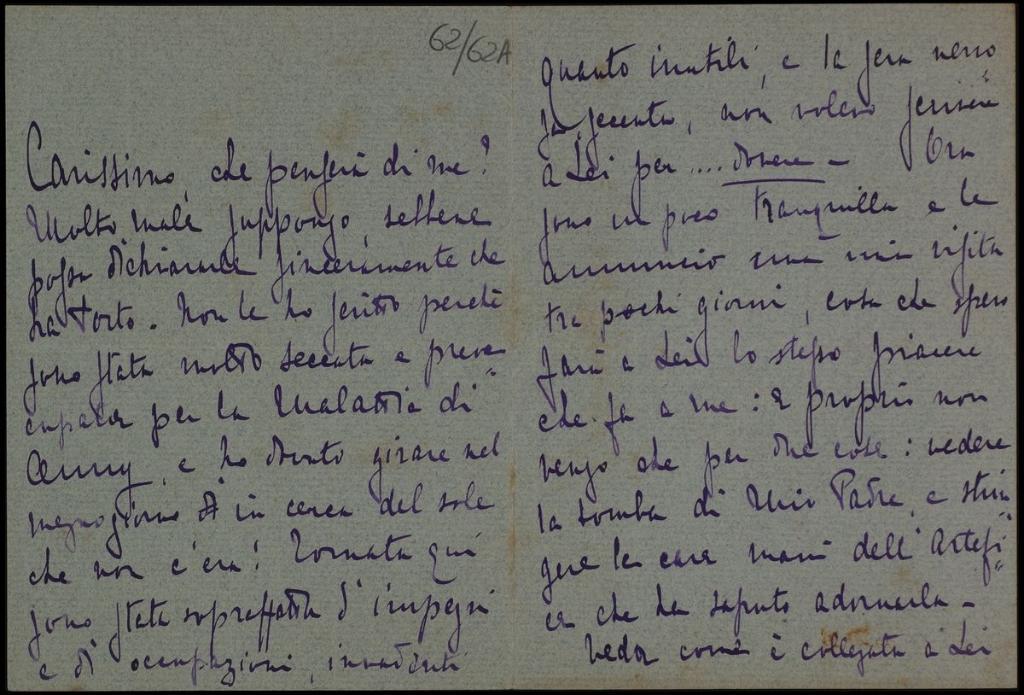 62/62A
Carissimo, che penserà di me?
Molto male suppongo, sebbene
possa dichiararle sinceramente che
ha torto. Non le ho scritto perché
sono stata molto seccata e preoc
cupata per la malattia di
e ho dovuto girare nel
mezzogiorno d'I in cerca del sole
che non c'era! Tornata qui
sono stata sopraffatta d'impegni
e di occupazioni, invadenti
quanto inutili, e la sera nervo
sa, seccata, non volevo scrivere
a Lei per .... dovere – Ora
sono un poco tranquilla e le
annuncio una mia visita
tra pochi giorni, cosa che spero
farà a Lei lo stesso piacere
che fa a me: e proprio non
vengo che per due cose: vedere
la tomba di Mio Padre, e strin
gere le care mani dell'Artefi
ce che ha saputo adornarla –
Veda come è collegata a Lei